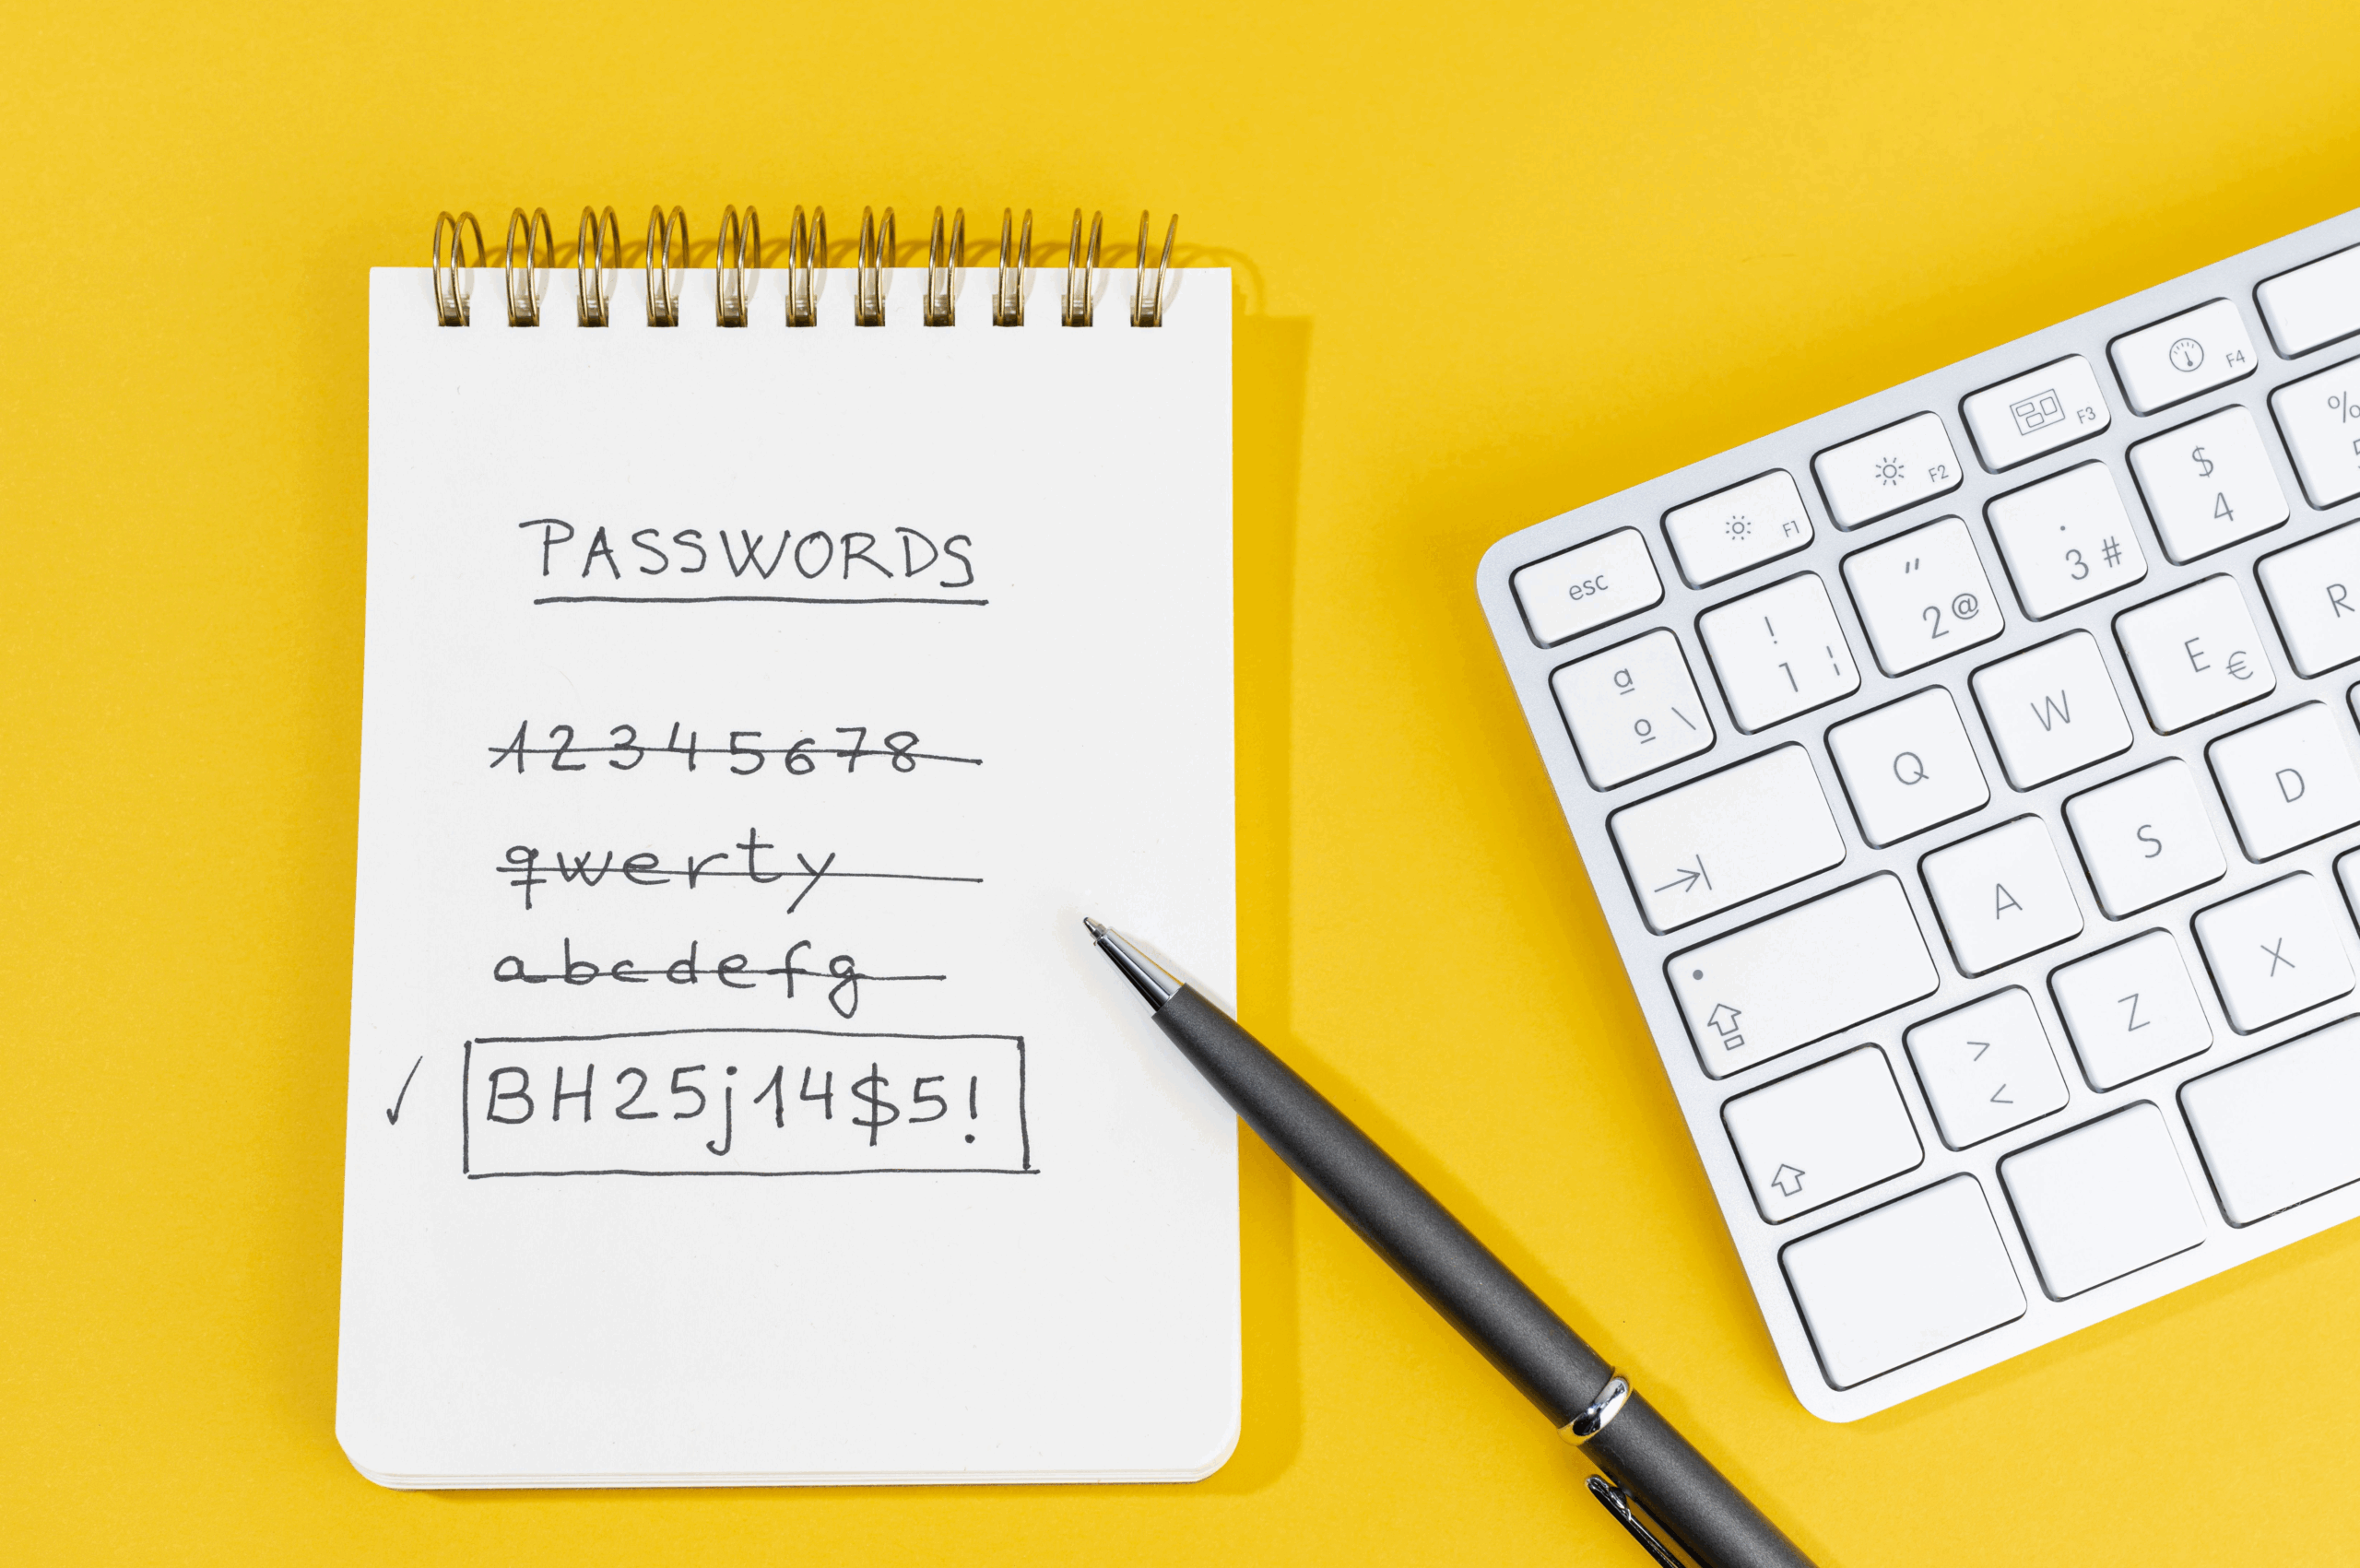 PASSWORDS
12345678
qwerty
abcdefg
✓ BH25j14$5!
F4
F3
F2
F1
esc
%
5
$
4
·
3 #
"
2 @
!
1 ¦
ª
º \
Q
W
E €
R
A
S
D
>
<
Z
X